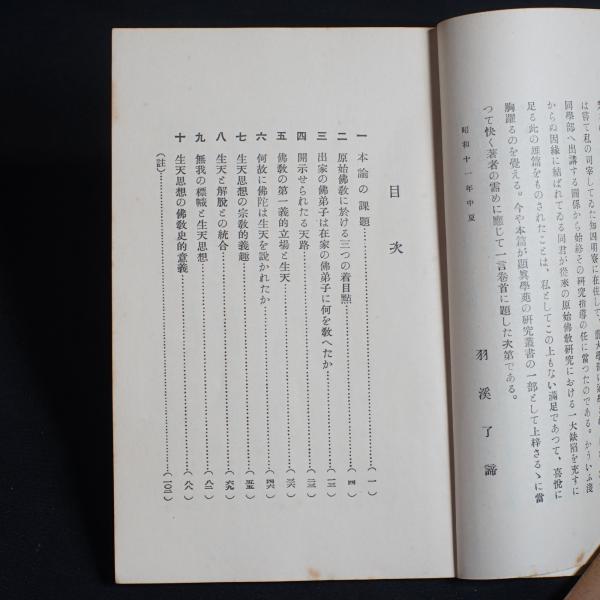 は嘗て私の司宰してゐた知四明寮に在住して、
同學部へ出講する關係から始終その研究指導の任に當つたのである。かういふ淺
からぬ因縁に結ばれてゐる同君が從來の原始佛敎研究における一大缺陷を充すに
足る此の雄篇をものされたことは、私としてこの上もない滿足であつて、喜悅に
胸躍るのを覺える。今や本篇が顯眞學苑の研究叢書の一部として上梓さるゝに當
つて快く著者の需めに應じて一言卷首に題した次第である。
昭和十一年中夏
羽溪了諦
目次
一 本論の課題………(一)
二 原始佛敎に於ける三つの着目點………(四)
三 出家の佛弟子は在家の佛弟子に何を敎へたか………(一三)
四 開示せられたる天路………(二三)
五 佛敎の第一義的立場と生天………(三六)
六 何故に佛陀は生天を說かれたか………(四六)
七 生天思想の宗敎的義趣………(五五)
八 生天と解脫との統合………(六九)
九 無我の標幟と生天思想………(八二)
十 生天思想の佛敎史的意義………(八八)
(註)………(一〇二)